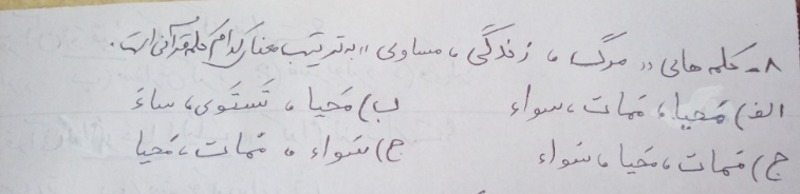 ۸- کلمه های «مرگ، زندگی، مساوی» به ترتیب معنای کدام کلمه قرآنی است.
الف) مَحیا، مَمات، سواء ب) مَحیا، تَستَوی، ساءَ
ج) مَمات، مَحیا، سَواء ج) سَواء، مَمات، مَحیا